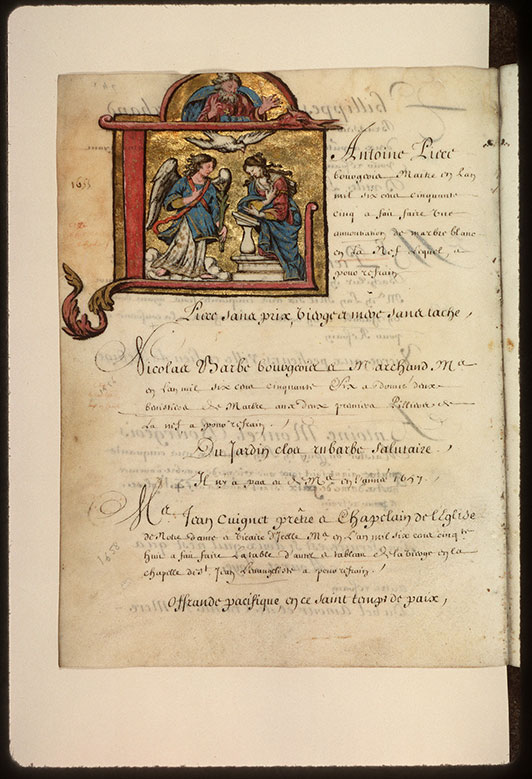 1655
Antoine Piere
bourgeois Maitre en Lan
mil six cens cinquante
cinq a fait faire une
annontiation de marbre blanc
en la Nef Lequel, a
pour refrain
Piere sans prix, vierge & mere sans tache,
Nicolas Barbe bourgeois & Marchand Mᵉ
en Lan mil six cens cinquante Six a donné deux
benistiers de Marbre aux deux premiers Pilliers de
La nef & pour refrain.
Du Jardin clos rubarbe salutaire.
Il ny a pas eu de Mᵉ en l'année 1657
1658
Mᵉ Jean Cuignet prêtre & Chapelain de l'Eglise
de Notre dame & vicaire d'Icelle Mᵉ en Lan mil six cens cinqᵗᵉ
huit a fait faire La table d'autel & tableau de la vierge en la
chapelle de Sᵗ Jean Levangeliste & pour refrain.
Offrande pacifique en ce saint temps de paix,